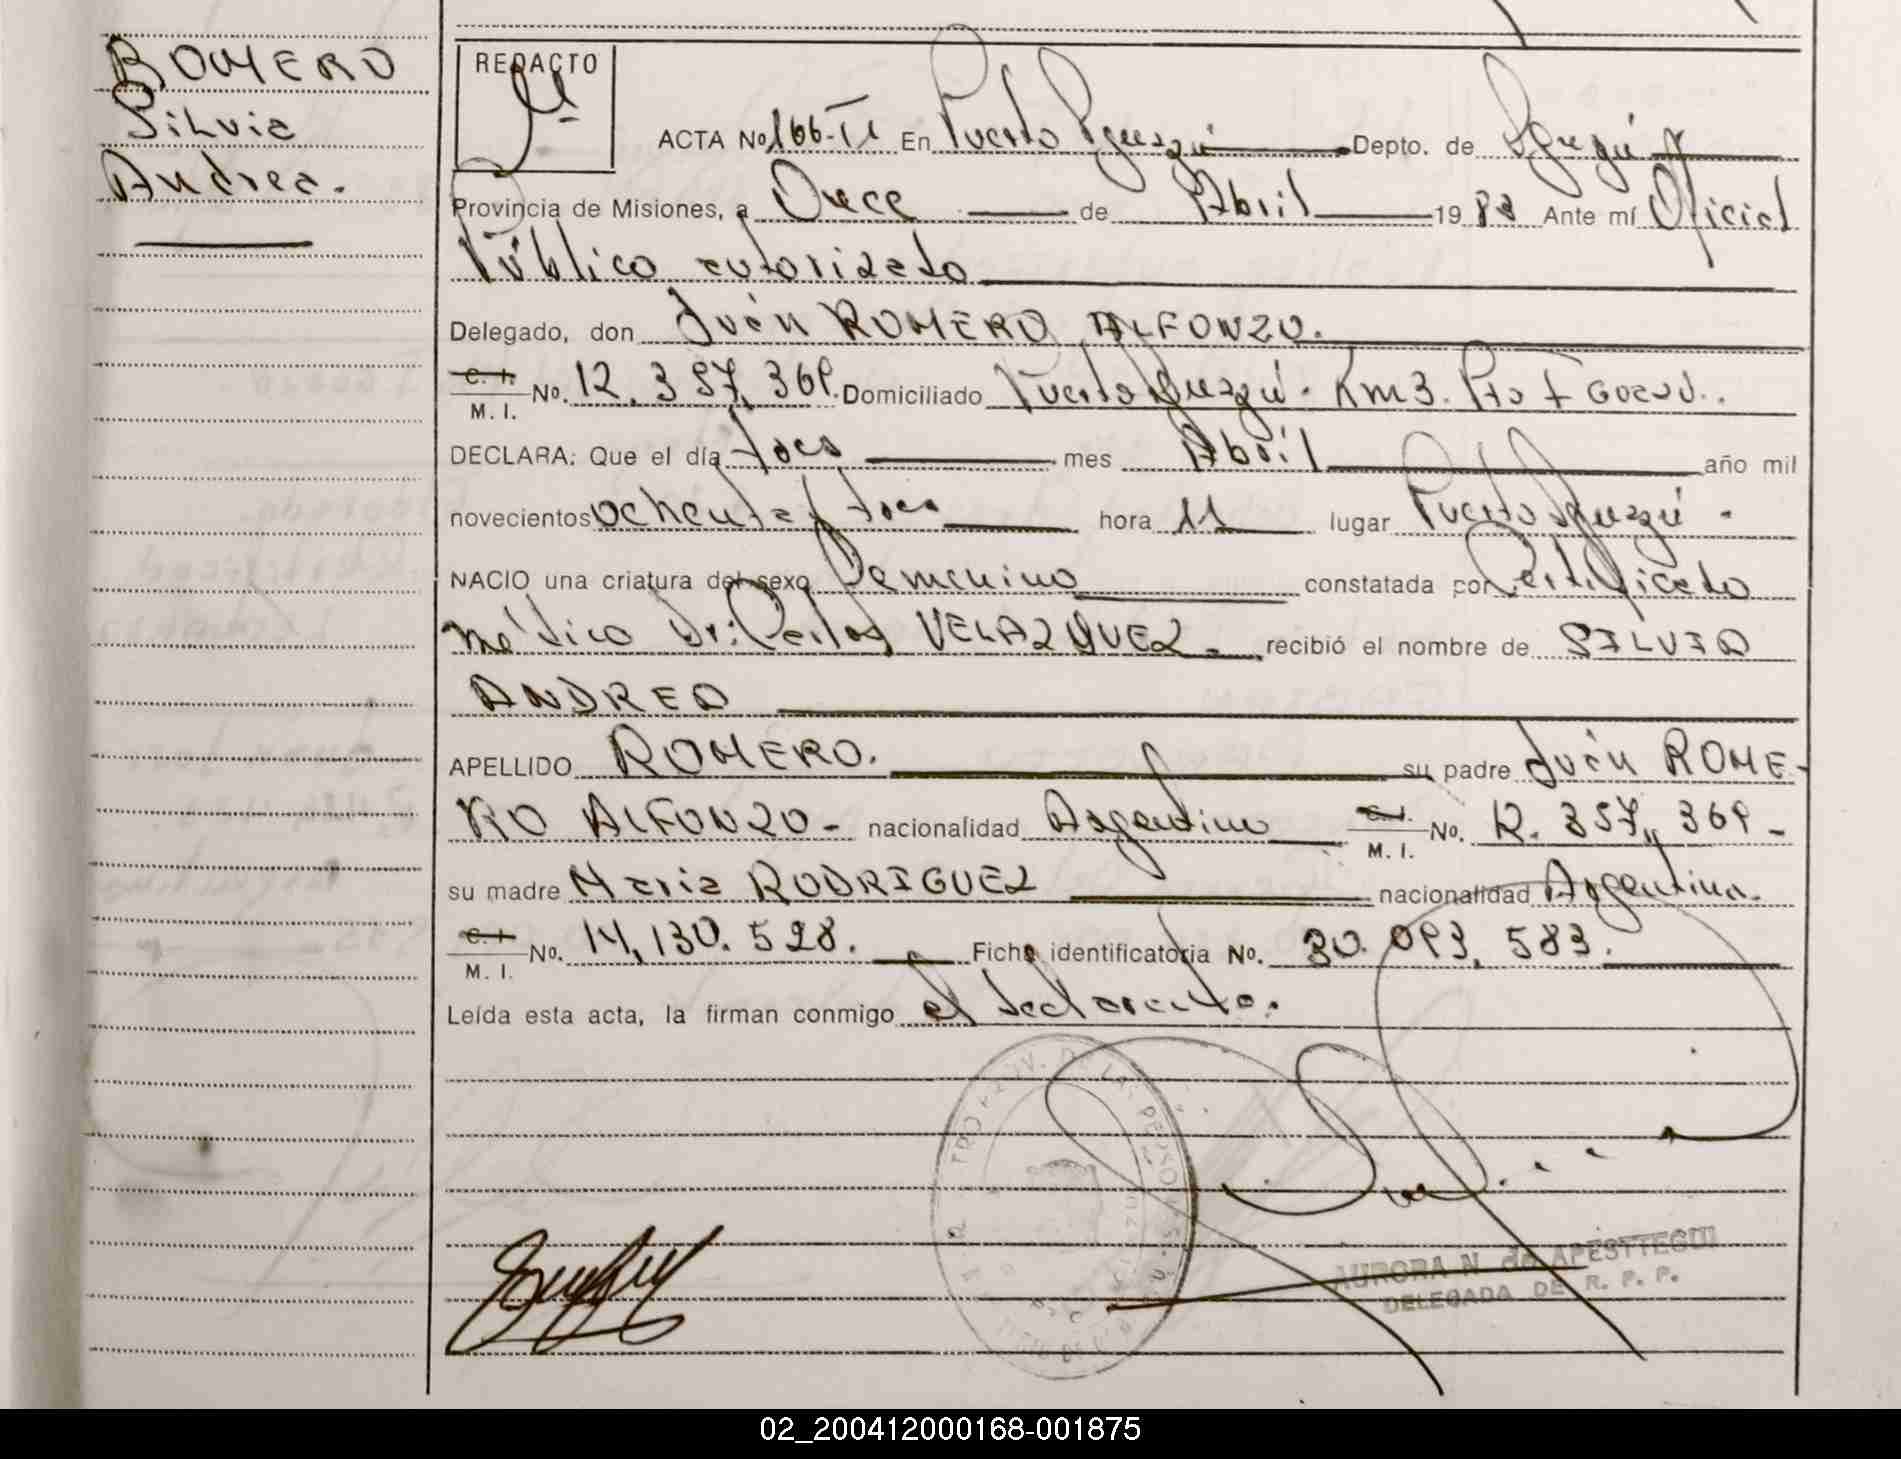 ROMERO
Silvia
Andrea.
REDACTO
ACTA Nº 166-TI En Puerto Iguazú Depto. de Iguazú
Provincia de Misiones, a Once de Abril 1983 Ante mí Oficial
Público autorizado
Delegado, don Juán ROMERO ALFONZO.
C. I. M. I. No. 12.357.369. Domiciliado Puerto Iguazú. Km3. Pto
DECLARA: Que el día tres mes Abril año mil
novecientos ochenta y tres hora 11 lugar Puerto Iguazú -
NACIO una criatura del sexo Femenino constatada por Certificado
médico Dr: Carlos VELAZQUEZ - recibió el nombre de SILVIA
ANDREA
APELLIDO ROMERO. su padre Juán ROME-
RO ALFONZO - nacionalidad Argentino C. I. M. I. No. 12.357.369 -
su madre Maria RODRIGUEZ nacionalidad Argentina.
C. I. M. I. No. 14,130.528. Ficha identificatoria No. 30.093.583.
Leída esta acta, la firman conmigo el declarante.
AURORA N. de APESTTEGUI
DELEGADA DE R. P. P.
02_200412000168-001875